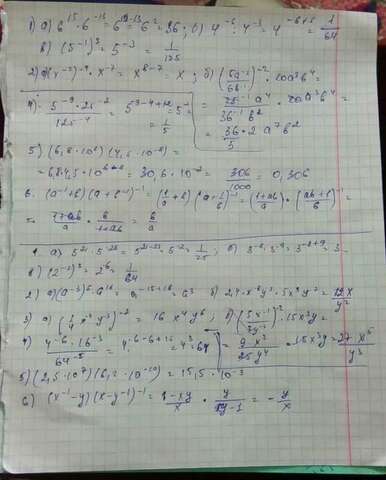 1) a) 6^15 · 6^-13 = 6^15-13 = 6^2 = 36; б) 4^-6 : 4^-3 = 4^-6+3 = 1/64
в) (5^-1)^3 = 5^-3 = 1/125
2) a) (x^-2)^-4 · x^-7 = x^8-7 = x; б) (5a^-2/6b^-1)^-2 · 10a^3b^4 =
4. 5^-9 · 25^-2 / 125^-4 = 5^-9-4+12 = 5^-1 = 25^-1a^4/36^-1b^2 · 10a^3b^4 =
= 1/5 = 36/5 · 2a^7b^2
5) (6,8 · 10^6)(4,5 · 10^-8) =
= 6,8 · 4,5 · 10^6-8 = 30,6 · 10^-2 = 306/1000 = 0,306
6. (a^-1+b)(a+b^-1)^-1 = (1/a + b)(a + 1/b)^-1 = (1+ab/a) · (ab+1/b)^-1 =
= 1+ab/a · b/1+ab = b/a
1. a) 5^21 · 5^-23 = 5^21-23 = 5^-2 = 1/25; б) 3^-8 : 3^-9 = 3^-8+9 = 3.
в) (2^-2)^3 = 2^-6 = 1/64
2) a) (a^-3)^5 · a^18 = a^-15+18 = a^3 б) 2,4 · x^-8y^5 · 5x^9y^-7 = 12x/y^2
3) a) (1/4 x^-2y^-3)^-2 = 16 x^4y^6; б) (5x^-1/3y^-2)^-2 · 15x^3y =
4) 4^-6 · 16^-3 / 64^-5 = 4^-6-6+15 = 4^3 = 64 = 9x^2/25y^4 · 15x^3y = 27x^5/5y^3
5) (2,5 · 10^7)(6,2 · 10^-10) = 15,5 · 10^-3
6) (x^-1 - y)(x - y^-1)^-1 = 1-xy/x · y/xy-1 = - y/x